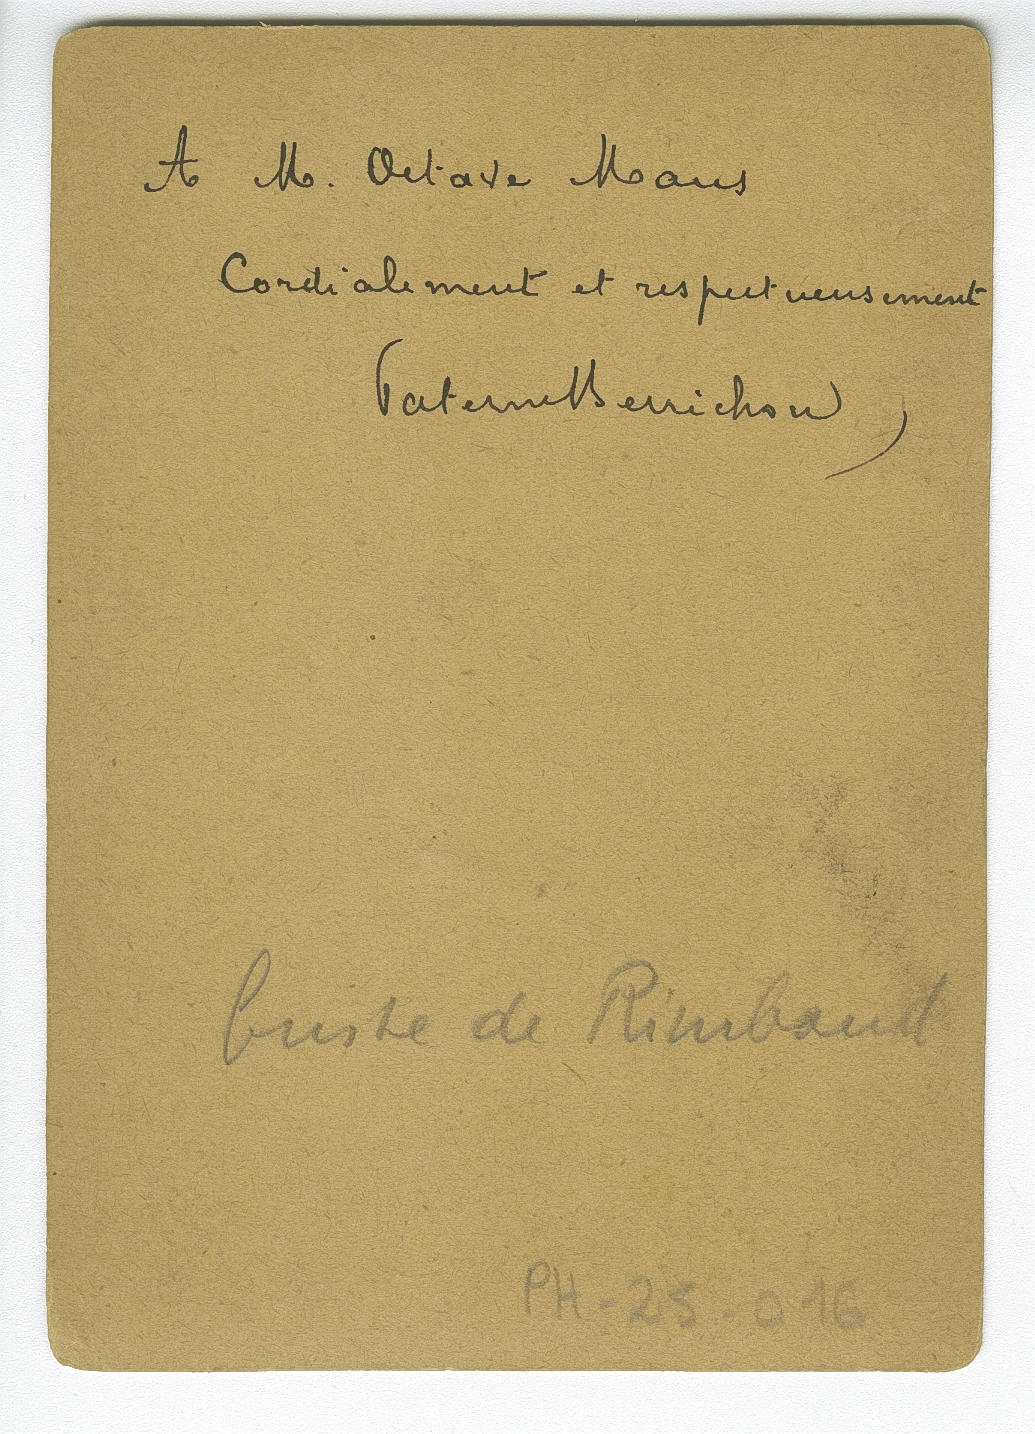 A M. Octave Maus
Cordialement et respectueusement
PaterneBerrichon
buste de Rimbaud
PH-25-016